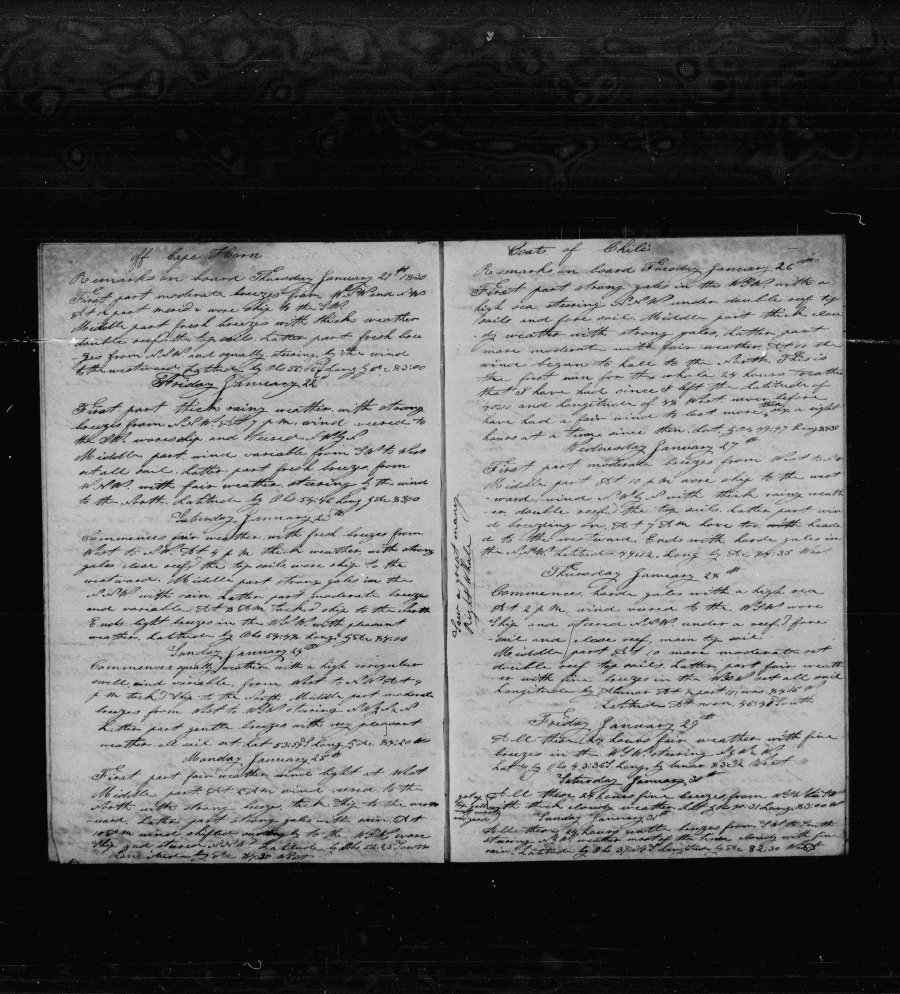 off Cape Horn
Remarks on board Thursday January 21st 1830
First part moderate breezes from WSW and
At part merid wore ship to the SW
Middle part fresh breezes with thick weather
double reefed the top sails. Latter part fresh bree
-zes from NNW and squally steering by the wind
to the westward. Latitude by Obs 56:16 Long by Dr 83:00
Friday January 22
First part thick rainy weather with strong
breezes from At 7 P.M. wind veered to
the SW wore ship and steered NW by N
Middle part wind variable from SW to West
out all sail. Latter part fresh breezes from
WNW with fair weather steering by the wind
to the North. Latitude by Obs 54:46 Long by Dr
Saturday January 23th
Commences fair weather with fresh breezes from
West to NW At 4 P.M. thick weather with strong
gales close reefd the top sails wore ship to the
westward. Middle part strong gales in the
NNW with rain Latter part moderate breezes
and variable At 8 AM tackd ship to the North
Ends light breezes in the WNW with pleasant
weather. Latitude by Obs 54:48 Long by Dr 84:00
Sunday January 24th
Commences squally weather with a high irregular
swell and variable, from West to NW At 4
P.M. tackd Ship to the North Middle part moderate
breezes from West to WSW steering NW by N
Latter part gentle breezes with very pleasant
weather all sail out Lat 53:59 Long by Dr 84:20 W
Monday January 25th
First part fair weather wind light at West
Middle part At AM wind veered to the
North with strong breeze tackd Ship to the
ward. Latter part strong gales with rain. At
10 AM wind shifted to the WSW wore
Ship and steered NNW Latitude by Obs 52:25 South
Longitude by Dr 84:30 West
Coats of Chili
Remarks on board Tuesday January 26th
First part strong gales in the WSW with a
high sea steering NNW under double reef top
sails and fore sail. Middle part thick clou
-dy weather with strong gales. Latter part
more moderate with fair weather At 10 the
wind began to hall to the North. This is
the first run for the whole 24 hours
that I have had since I left the Latitude of
and Longitude of 48 West never before
have had a fair wind to last more than six a eight
hours at a time since then. Lat by 49:47 Long 84:30
Wednesday January 27th
First part moderate breezes from West to
Middle part At 10 P.M. wore ship to the west
-ward wind NW by N with thick rainy weath
er double reefd the top sails. Latter part win
d breezing on, At 7 AM hove too with heade
d to the westward. Ends with harde gales in
the NNW Latitude 49:12. Long by Dr 84:35 West
Saw a great many
Right Whale
Thursday January 28th
Commences harde gales with a high sea
At 2 P.M. wind veered to the WSW wore
Ship and steered NNW under a reefd fore
sail and close reef main top sail
Middle part At 10 more moderate out
double reef top sails. Latter part fair weath
-er with fine breezes in the WSW out all sail
Longitude by Lunar At part 11 was 84:15 W
Latitude At noon 46:48 South
Friday January 29th
All these 24 hours fair weather with fine
breezes in the WSW steering N by W
Lat by Obs 43:36 Long by Lunar 83:32 West
Saturday January 30th
All these 24 hours fine breezes from
with thick cloudy weather Lat Long 83:00 W
Sunday January 31th
All these 24 hours gentle breezes from SW to South
steering N by W weather cloudy with fine
rain. Latitude by Obs 37:54 Longitude by Dr 82:30 West